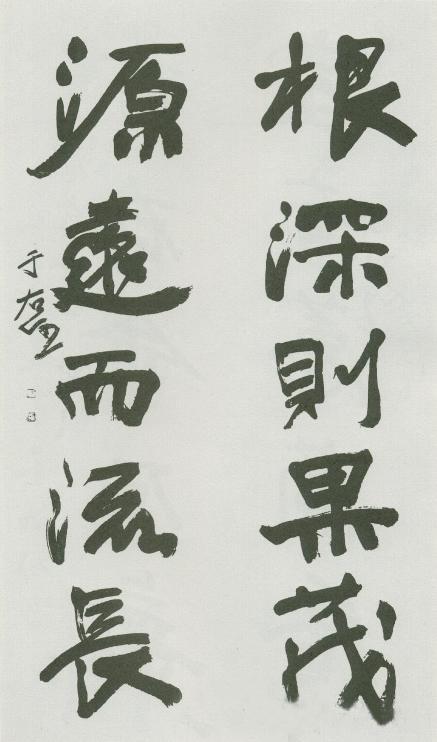 根深則果茂
源遠而流長
于右任